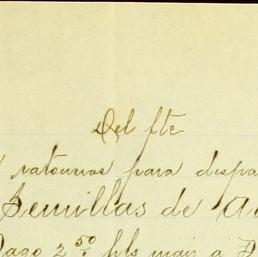 Del fte
ratonnas para despa
Semillas de a
Pago 2 50 hls maiz a